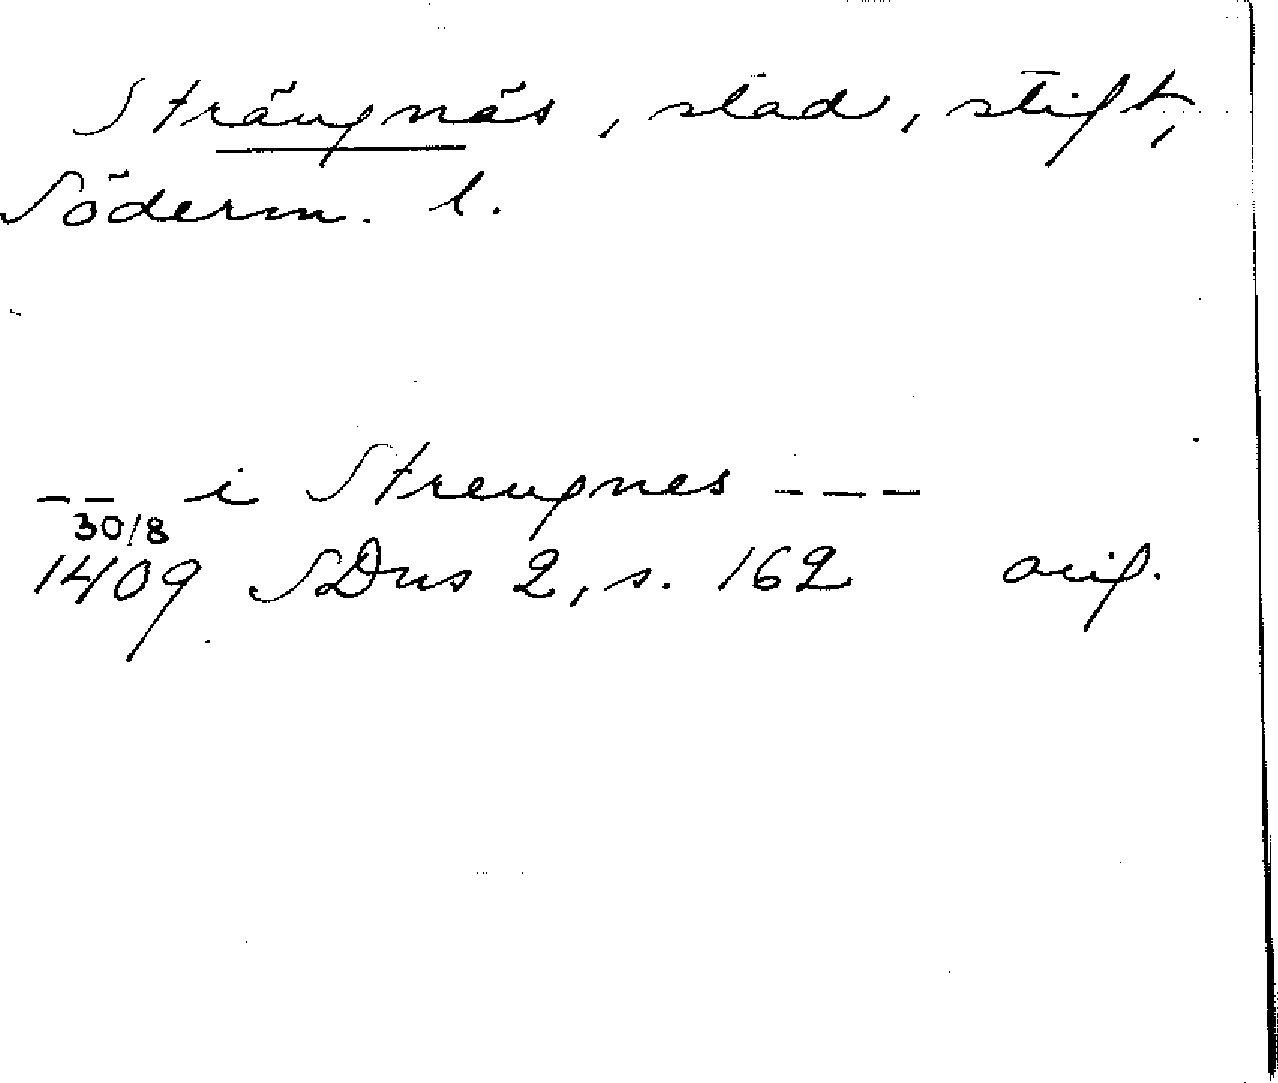 Strängnäs, stad, stift,
Söderm. l.
-- i Strengnes ---
30/8
1409 SDns 2, s. 162 orig.